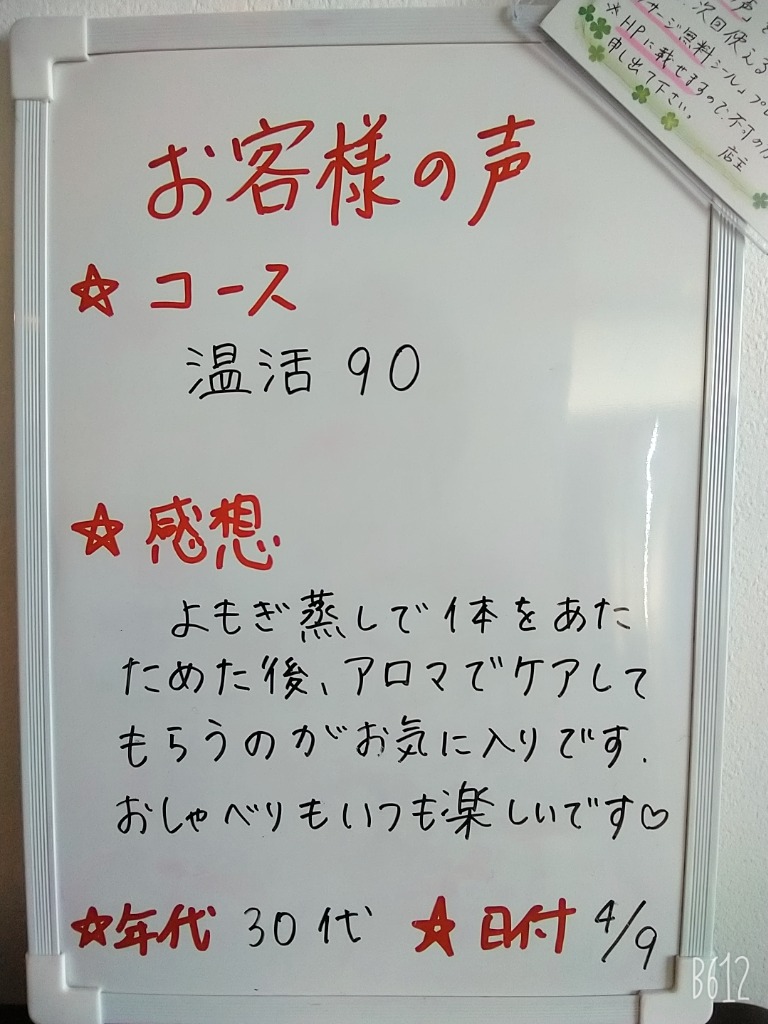 お客様の声
☆ コース
温活 90
☆ 感想
よもぎ蒸しで体をあた
ためた後、アロマでケアして
もらうのがお気に入りです.
おしゃべりもいつも楽しいです♡
☆年代 30代 ★日付 4/9
次回使える
サージ無料シール」プレ
※HPに載せますので、不可の方
申し出下さい。
店主
B612